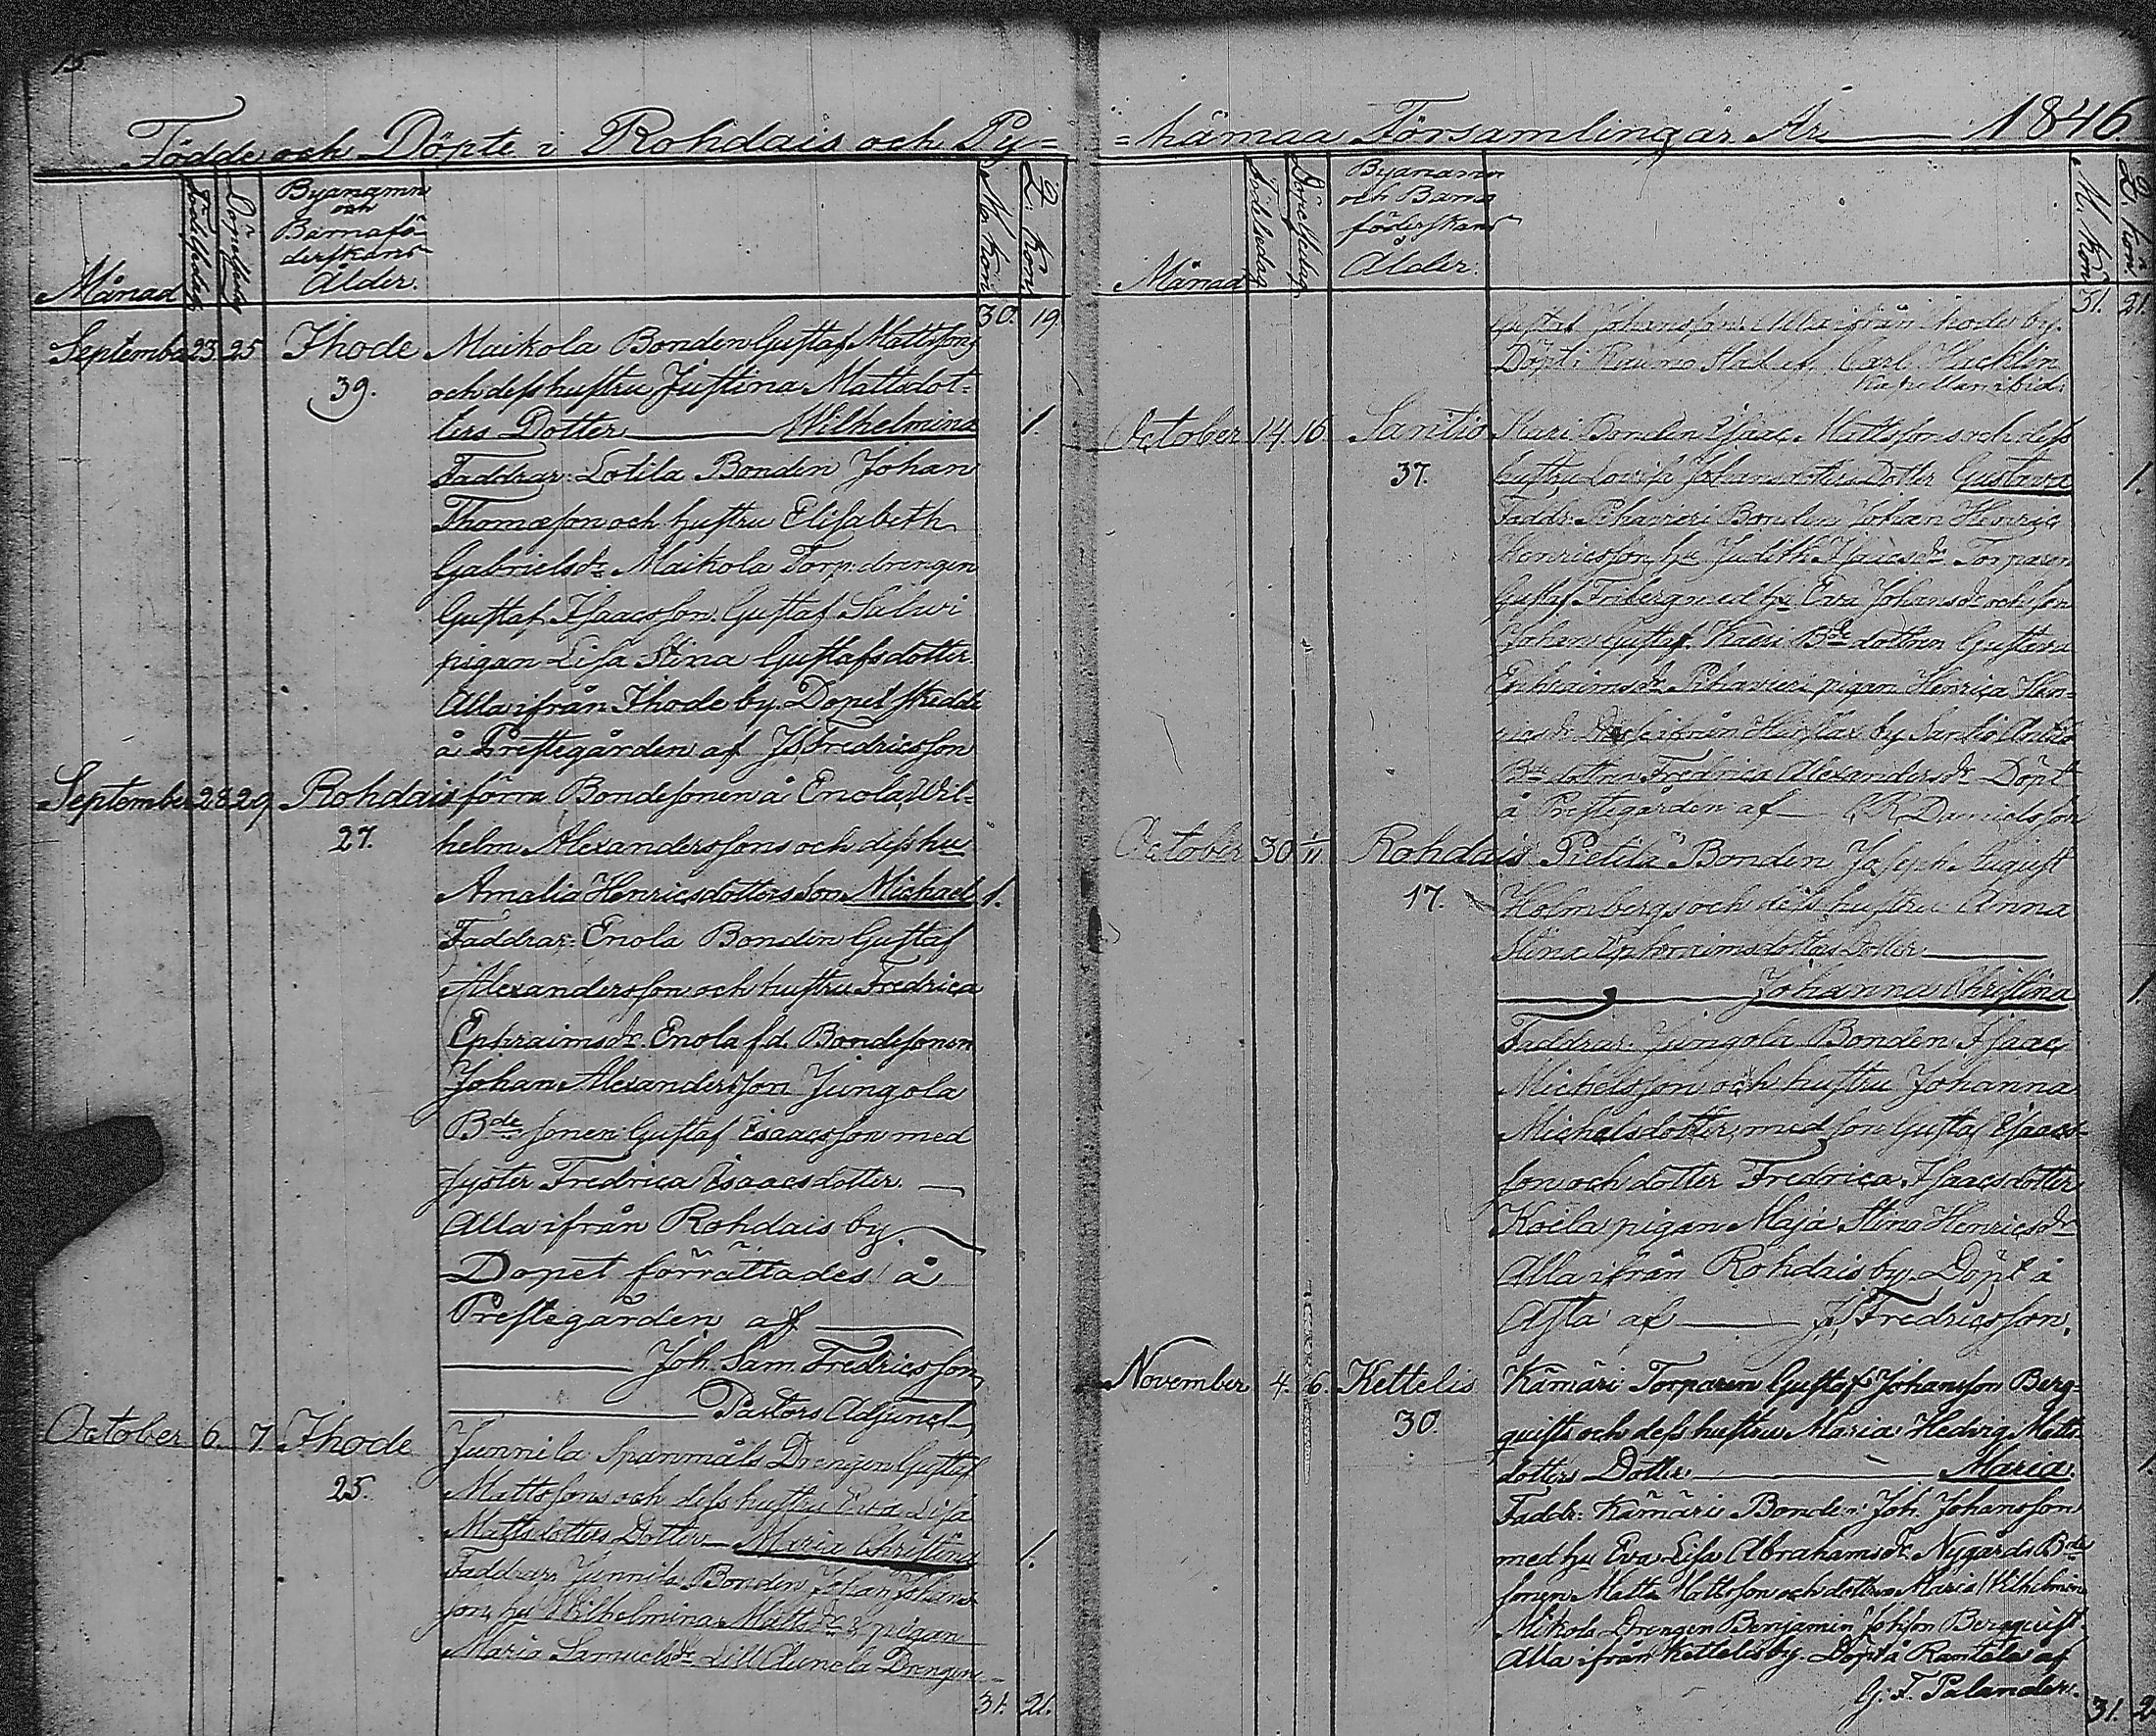 15
Födde och Döpte i Rohdais och Py=
Månad
Födelsedag
Döpelsedag
Byanamn
och
Barnafö-
derskans
Ålder.
M. kön
Q. kön
30. 19.
September 23 25 Ihode Maikola Bonden Gustaf Mattssons
39. och dess hustru Justina Mattsdot-
ters Dotter Wilhelmina 1.
Faddrar: Lotila Bonden Johan
Thomæson och hustru Elisabeth
Gabrielsdr Maikola Torp. drengen
Gustaf Isaacsson. Gustaf Salwi
pigan Lisa Stina Gustafsdotter.
Alla ifrån Ihode by. Dopet skedde
å Prestegården af JS Fredricsson
September 28 29. Rohdais förra Bondesonen å Enola, Wil-
27. helm Alexanderssons och dess hu
Amalia Henricsdotters Son Michael 1.
Faddrar: Enola Bonden Gustaf
Alexandersson och hustru Fredrica
Ephraimsdr. Enola f.d. Bondesonen
Johan Alexandersson Jungola
Bde sonen Gustaf Isaacsson med
syster Fredrica Isaacsdotter.
Alla ifrån Rohdais by
Dopet förrättades å
Prestegården af
Joh. Sam. Fredricsson,
Pastors Adjunct,
October 6. 7 Ihode Junnila Spanmåls Drengen Gustaf
25. Mattssons och dess hustru Eva Lisa
Mattsdotters Dotter Maria Christina 1.
Faddrar: Junnila Bonden Johan Johans-
son, hu Wilhelmina Mattsdr & pigan
Maria Samuelsdr Lill Drengen
31. 21.
=hämaa Församlingar År 1846.
Månad
Födelsedag
Döpelsedag
Byanamn
och Barna
föderskans
Ålder.
M. kön
Q. kön
31. 21
Gustaf Johansson. Alla ifrån Ihode by.
Döpt i Raumo Stad af Carl Hacklin
Kapellan ibid.
October 14. 16 Santio Kari Bonden Isaac Mattssons och dess
37. hustru Lovisa Johansdotters Dotter Gustava 1.
Faddr. Pihavieri Bonden Johan Henric
Henricsson, hu Judith Isaacsdr Torparen
Gustaf Friberg med hu Eva Johansdr och son
Johan Gustaf. Kaari Bde dottren Gustava
Ephraimsdr Pihavieri pigan Henrica Hen-
ricsdr ifrån by Santio
Bde dottren Fredrica Alexandersdr Döpt
å Prestegården af Danielsson
October 30. 1/11 Rohdais Pietilä Bonden Joseph August
17. Holmbergs och dess hustru Anna
Stina Ephraimsdotters Dotter
Johanna Christina 1
Faddrar: Jungola Bonden Isaac
Michelsson och hustru Johanna
Michelsdotter, med son Gustaf Isaacs-
son och dotter Fredrica Isaacsdotter
Koela pigan Maja Stina Henricsdr
Alla ifrån Rohdais by. Döpt å
af JS Fredricsson,
November 4. 6. Kettelis Kämäri Torparen Gustaf Johansson Berg-
30. quists och dess hustru Maria Hedvig Matts-
dotters Dotter Maria. 1
Faddr: Kämäri Bonden Joh. Johansson
med hu Eva Lisa Abrahamsdr. Nygårds Bde
sonen Matts Mattsson och dottren Maria Wilhelmina
Mikola Drengen Benjamin Johsson Bergquist.
Alla ifrån Kettelis by. Döpt å Rantala af
G. F. Palander.
31. 2